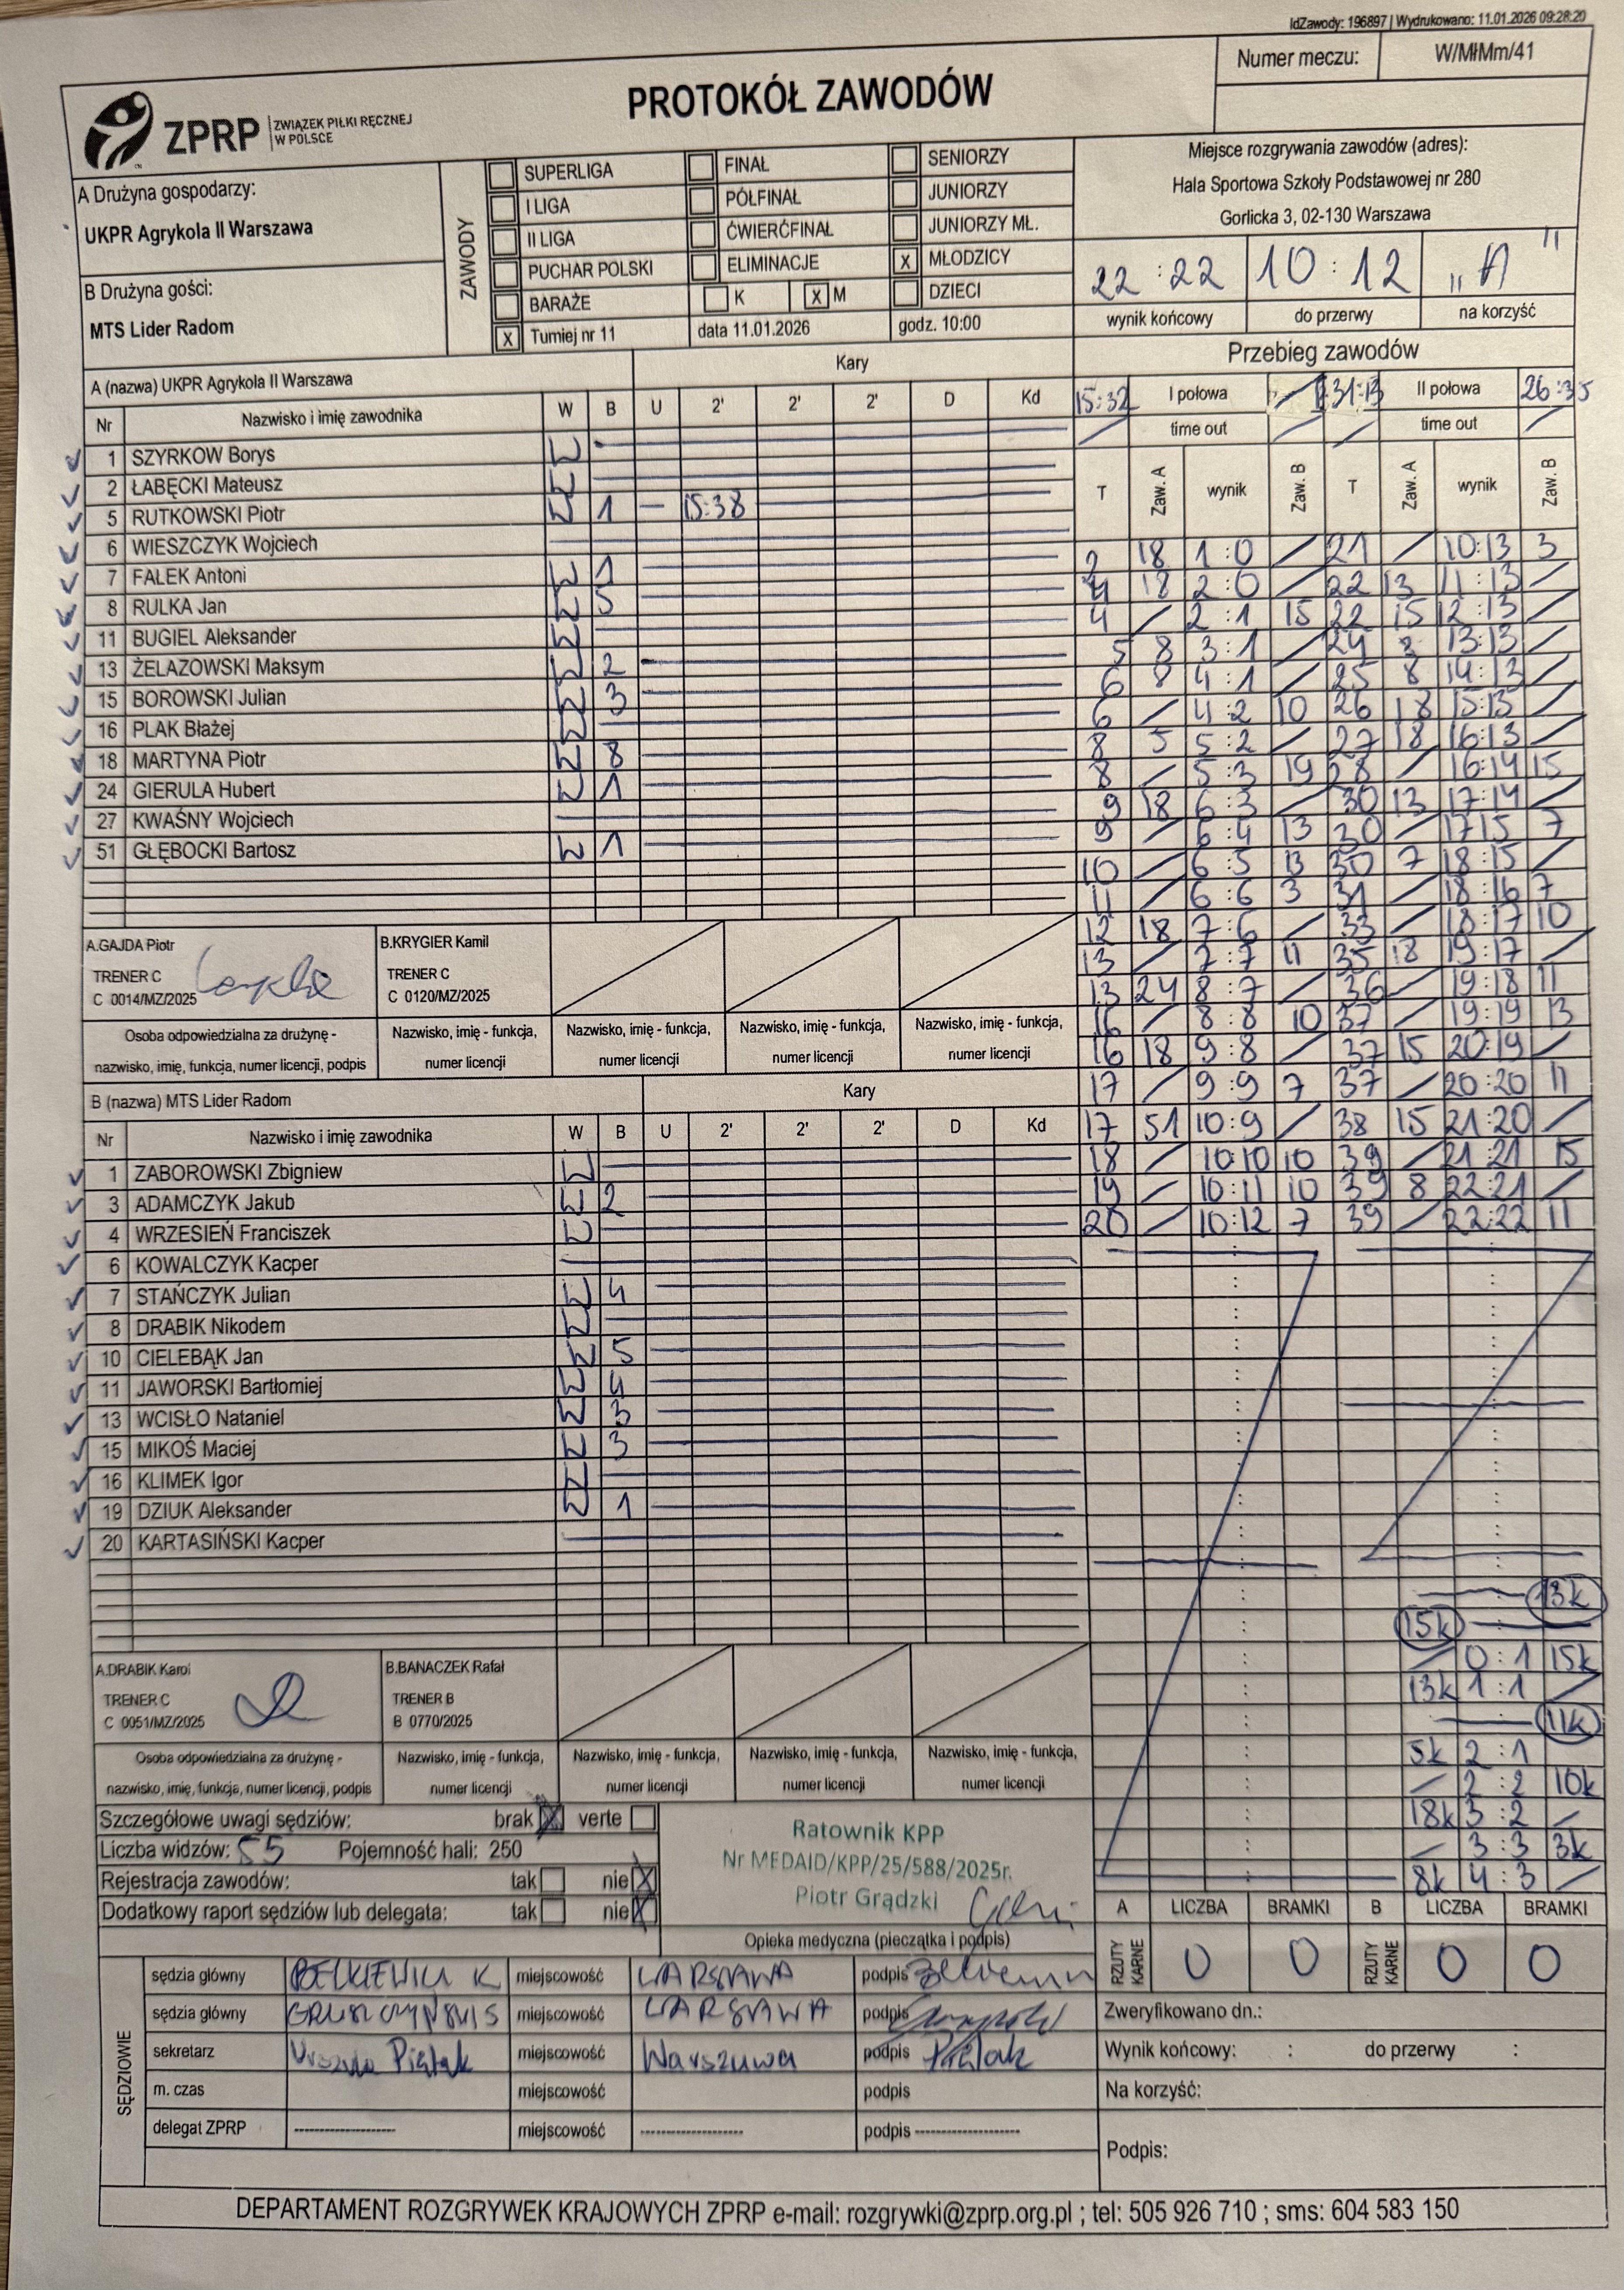 IdZawody: 196897 | Wydrukowano: 11.01.2026 09:28:20
Numer meczu: W/MłMm/41
PROTOKÓŁ ZAWODÓW
ZPRP ZWIĄZEK PIŁKI RĘCZNEJ W POLSCE
A Drużyna gospodarzy:
UKPR Agrykola II Warszawa
B Drużyna gości:
MTS Lider Radom
ZAWODY
SUPERLIGA FINAŁ SENIORZY
I LIGA PÓŁFINAŁ JUNIORZY
II LIGA ĆWIERĆFINAŁ JUNIORZY MŁ.
PUCHAR POLSKI ELIMINACJE X MŁODZICY
BARAŻE K X M DZIECI
X Turniej nr 11 data 11.01.2026 godz. 10:00
Miejsce rozgrywania zawodów (adres):
Hala Sportowa Szkoły Podstawowej nr 280
Gorlicka 3, 02-130 Warszawa
22:22 10:12 "A"
wynik końcowy do przerwy na korzyść
A (nazwa) UKPR Agrykola II Warszawa Kary
Nr Nazwisko i imię zawodnika W B U 2' 2' 2' D Kd
1 SZYRKOW Borys W
2 ŁABĘCKI Mateusz W
5 RUTKOWSKI Piotr W 1 – 15:38
6 WIESZCZYK Wojciech
7 FALEK Antoni W 1
8 RULKA Jan W 5
11 BUGIEL Aleksander W
13 ŻELAZOWSKI Maksym W 2
15 BOROWSKI Julian W 3
16 PLAK Błażej W
18 MARTYNA Piotr W 8
24 GIERULA Hubert W 1
27 KWAŚNY Wojciech
51 GŁĘBOCKI Bartosz W 1
A.GAJDA Piotr
TRENER C
C 0014/MZ/2025
B.KRYGIER Kamil
TRENER C
C 0120/MZ/2025
Osoba odpowiedzialna za drużynę -
nazwisko, imię, funkcja, numer licencji, podpis
Nazwisko, imię - funkcja,
numer licencji
Nazwisko, imię - funkcja,
numer licencji
Nazwisko, imię - funkcja,
numer licencji
Nazwisko, imię - funkcja,
numer licencji
B (nazwa) MTS Lider Radom Kary
Nr Nazwisko i imię zawodnika W B U 2' 2' 2' D Kd
1 ZABOROWSKI Zbigniew W
3 ADAMCZYK Jakub W 2
4 WRZESIEŃ Franciszek W
6 KOWALCZYK Kacper
7 STAŃCZYK Julian W 4
8 DRABIK Nikodem W
10 CIELEBĄK Jan W 5
11 JAWORSKI Bartłomiej W 4
13 WCISŁO Nataniel W 3
15 MIKOŚ Maciej W 3
16 KLIMEK Igor W
19 DZIUK Aleksander W 1
20 KARTASIŃSKI Kacper
A.DRABIK Karol
TRENER C
C 0051/MZ/2025
B.BANACZEK Rafał
TRENER B
B 0770/2025
Osoba odpowiedzialna za drużynę -
nazwisko, imię, funkcja, numer licencji, podpis
Nazwisko, imię - funkcja,
numer licencji
Nazwisko, imię - funkcja,
numer licencji
Nazwisko, imię - funkcja,
numer licencji
Nazwisko, imię - funkcja,
numer licencji
Przebieg zawodów
15:32 I połowa / 31:13 II połowa 26:35
/ time out / / time out /
T Zaw. A wynik Zaw. B T Zaw. A wynik Zaw. B
2 18 1:0 / 21 / 10:13 3
4 18 2:0 / 22 13 11:13 /
4 / 2:1 15 22 15 12:13 /
5 8 3:1 / 24 8 13:13 /
6 8 4:1 / 25 8 14:13 /
6 / 4:2 10 26 18 15:13 /
8 5 5:2 / 27 18 16:13 /
8 / 5:3 19 28 / 16:14 15
9 18 6:3 / 30 13 17:14 /
9 / 6:4 13 30 / 17:15 7
10 / 6:5 13 30 7 18:15 /
11 / 6:6 3 31 / 18:16 7
12 18 7:6 / 33 / 18:17 10
13 / 7:7 11 35 18 19:17 /
13 24 8:7 / 36 / 19:18 11
16 / 8:8 10 37 / 19:19 13
16 18 9:8 / 37 15 20:19 /
17 / 9:9 7 37 / 20:20 11
17 51 10:9 / 38 15 21:20 /
18 / 10:10 10 39 / 21:21 15
19 / 10:11 10 39 8 22:21 /
20 / 10:12 7 39 / 22:22 11
13k
15k
/ 0:1 15k
13k 1:1 /
11k
5k 2:1
/ 2:2 10k
18k 3:2 /
/ 3:3 3k
8k 4:3 /
A LICZBA BRAMKI B LICZBA BRAMKI
RZUTY KARNE 0 0 RZUTY KARNE 0 0
Szczegółowe uwagi sędziów: brak X verte
Liczba widzów: 55 Pojemność hali: 250
Rejestracja zawodów: tak nie X
Dodatkowy raport sędziów lub delegata: tak nie X
Ratownik KPP
Nr MEDAID/KPP/25/588/2025r.
Piotr Grądzki
Opieka medyczna (pieczątka i podpis)
SĘDZIOWIE
sędzia główny BELKIEWICZ K miejscowość WARSZAWA podpis
sędzia główny GRUSZCZYŃSKI S miejscowość WARSZAWA podpis
sekretarz Urszula Piątak miejscowość Warszawa podpis Piątak
m. czas miejscowość podpis
delegat ZPRP -------------------- miejscowość -------------------- podpis --------------------
Zweryfikowano dn.:
Wynik końcowy: : do przerwy :
Na korzyść:
Podpis:
DEPARTAMENT ROZGRYWEK KRAJOWYCH ZPRP e-mail: rozgrywki@zprp.org.pl ; tel: 505 926 710 ; sms: 604 583 150